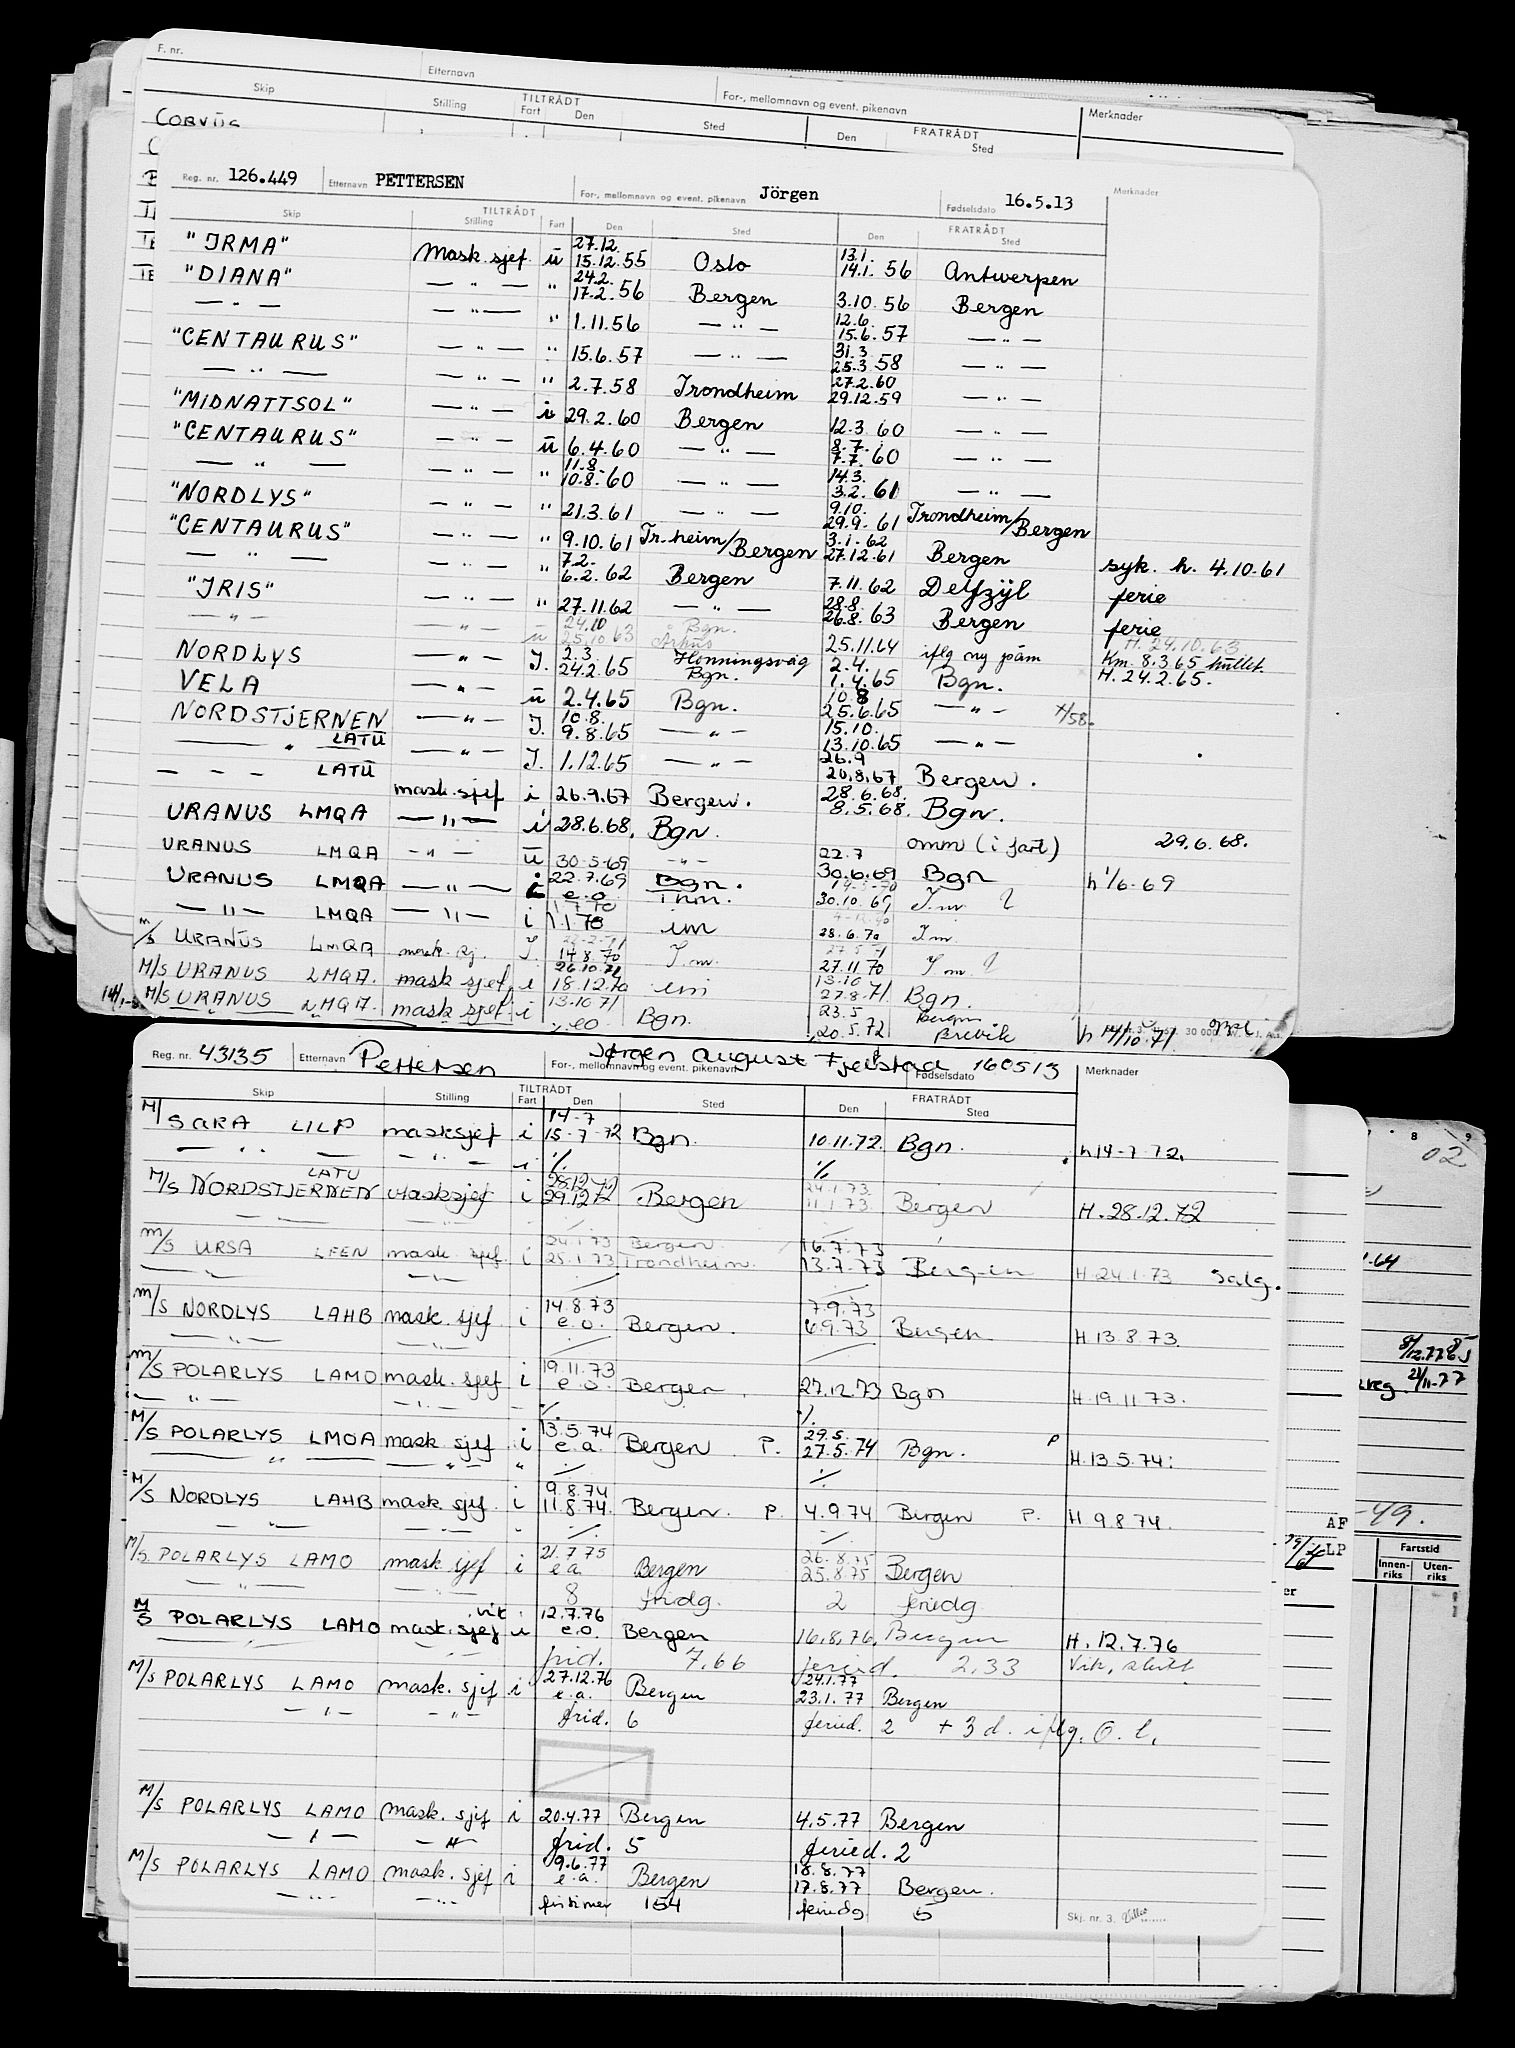 F. nr.
Etternavn
For-, mellomnavn og event. pikenavn
Merknader
Skip Stilling TILTRÅDT Fart Den Sted FRATRÅDT Den Sted
Reg. nr. 126.449 Etternavn PETTERSEN For-, mellomnavn og event. pikenavn Jörgen Fødselsdato 16.5.13 Merknader
Skip Stilling TILTRÅDT Fart Den Sted Den FRATRÅDT Sted
"IRMA" Mask. sjef u 27.12. 15.12.55 Oslo 13.1. 14.1.56 Antwerpen
"DIANA" — " — " 24.2. 17.2.56 Bergen 3.10.56 Bergen
— " — — " — " 1.11.56 — " — 12.6. 15.6.57 — " —
"CENTAURUS" — " — " 15.6.57 — " — 31.3. 25.3.58 — " —
— " — — " — " 2.7.58 Trondheim 27.2.60 29.12.59 — " —
"MIDNATTSOL" — " — i 29.2.60 Bergen 12.3.60 — " —
"CENTAURUS" — " — u 6.4.60 — " — 8.7. 7.7.60 — " —
— " — — " — " 11.8. 10.8.60 — " — 14.3. 3.2.61 — " —
"NORDLYS" — " — " 21.3.61 — " — 9.10. 29.9.61 Trondheim/Bergen
"CENTAURUS" — " — " 9.10.61 Tr.heim/Bergen 3.1.62 27.12.61 Bergen syk. h. 4.10.61
— " — — " — " 7.2. 6.2.62 Bergen 7.11.62 Delfzijl ferie
"IRIS" — " — " 27.11.62 — " — 28.8. 26.8.63 Bergen ferie
— " — — " — u 24.10 25.10.63 Bgn. Århus 25.11.64 iflg ny påm H. 24.10.63
NORDLYS — " — I. 2.3. 24.2.65 Honningsvåg Bgn. 2.4. 1.4.65 Bgn. Km. 8.3.65 H. 24.2.65.
VELA — " — u 2.4.65 Bgn. 10.8 25.6.65 — " —
NORDSTJERNEN LATU — " — I. 10.8. 9.8.65 — " — 15.10. 13.10.65 — " —
— " — LATU — " — I. 1.12.65 — " — 26.9 20.8.67 Bergen.
— — — mask. sjef i 26.9.67 Bergen. 28.6.68. 8.5.68. Bgn.
URANUS LMQA — " — i 28.6.68. Bgn. omm (i fart) 29.6.68.
URANUS LMQA — " — u 30-5-69 — " — 22.7 30.6.69 Bgn h 1/6-69
URANUS LMQA — " — i 22.7.69 e.o. Bgn. 30.10.69 I.m.
— " — LMQA — " — i 1.1.70 im 28.6.70 Im.
M/S URANUS LMQA I. 14.8.70 I.m. 27.11.70 I m.
M/S URANUS LMQA. mask sjef. i 18.12.70 im 13.10 27.8.71 Bgn.
M/S URANUS LMQA. mask sjef. i 13.10.71 eo Bgn. 23.5 20.5.72 Bergen Brevik h 14/10.71.
Reg. nr. 43135 Etternavn Pettersen For-, mellomnavn og event. pikenavn Jørgen August Fjelstad Fødselsdato 160513 Merknader
Skip Stilling TILTRÅDT Fart Den Sted Den FRATRÅDT Sted
M/S SARA LILP masksjef i 14-7 15-7-72 Bgn. 10.11.72 Bgn. h 14-7.72.
M/S NORDSTJERNEN LATU Masksjef i 28.12.72 29.12.72 Bergen 24.1.73 11.1.73 Bergen H. 28.12.72
M/S URSA LFEN mask. sjef. i 24.1.73 25.1.73 Bergen Trondheim. 16.7.73 13.7.73 Bergen H. 24.1.73 Salg.
M/S NORDLYS LAHB mask. sjef i 14.8.73 e.o. Bergen. 7.9.73 6.9.73 Bergen H. 13.8.73.
M/S POLARLYS LAMO mask. sjef i 19.11.73 e.o. Bergen. 27.12.73 Bgn H. 19.11.73.
M/S POLARLYS LMOA mask. sjef. i 13.5.74 e.a. Bergen P. 29.5. 27.5.74 Bgn. P H. 13.5.74.
M/S NORDLYS LAHB mask. sjef. i 9.8.74 11.8.74. Bergen. P. 4.9.74 Bergen P. H 9.8.74.
M/S. POLARLYS LAMO mask. sjef i 21.7.75 ea Bergen 26.8.75 25.8.75 Bergen
— " — 8 fridg. 2 feriedg
M/S POLARLYS LAMO mask. sjef vik. i 12.7.76 e.o. Bergen 16.8.76. Bergen H. 12.7.76
frid. 7,66 feried. 2,33 Vik. slutt
M/S POLARLYS LAMO mask. sjef i 27.12.76 e.a. Bergen 24.1.77 23.1.77 Bergen
— " — — " — frid. 6 feried. 2 + 3 d. iflg. O. l.
M/S POLARLYS LAMO mask. sjef i 20.4.77 Bergen 4.5.77 Bergen
— " — — " — frid. 5 feried. 2
M/S POLARLYS LAMO mask. sjef i 9.6.77 e.a. Bergen 18.8.77 17.8.77 Bergen.
— " — — " — fritimer 154 feriedg 5
Skj. nr. 3.
02
8/12.77
21/11-77
-49.
AF
LP
Fartstid
Innen-riks Uten-riks